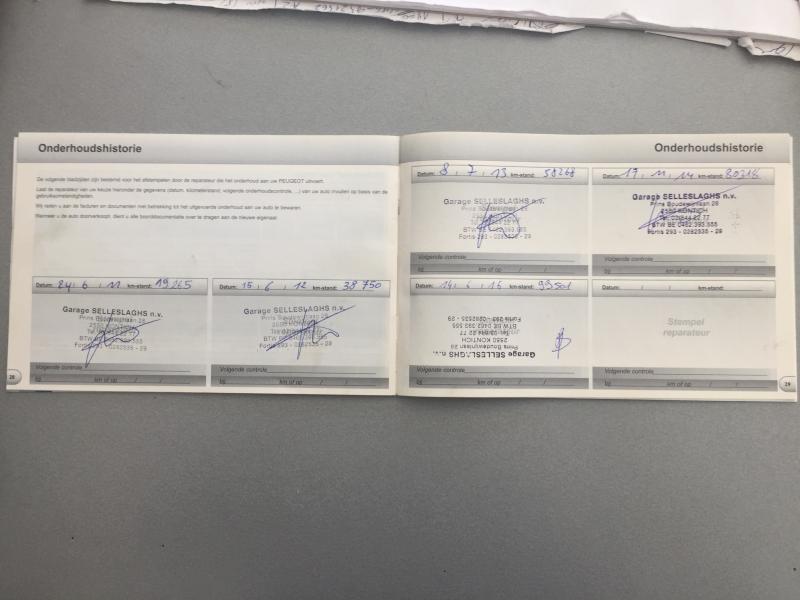 Onderhoudshistorie
De volgende bladzijden zijn bestemd voor het afstempelen door de reparateur die het onderhoud aan uw PEUGEOT uitvoert.
Laat de reparateur van uw keuze hieronder de gegevens (datum, kilometerstand, volgende onderhoudscontrole, ...) van uw auto invullen op basis van de
gebruiksomstandigheden.
Wij raden u aan de facturen en documenten met betrekking tot het uitgevoerde onderhoud aan uw auto te bewaren.
Wanneer u de auto doorverkoopt, dient u alle boorddocumentatie over te dragen aan de nieuwe eigenaar.
Datum: 24 / 6 / 11 km-stand: 19265
Garage SELLESLAGHS n.v.
Prins Boudewijnlaan 28
2550 KONTICH
BTW BE 0462.393.555
Fortis 293 - 0282535 - 29
Volgende controle
bij km of op / /
28
Datum: 15 / 6 / 12 km-stand: 38 750
Garage SELLESLAGHS n.v.
Prins Boudewijnlaan 28
2550 KONTICH
BTW BE 0462.393.555
Fortis 293 - 0282535 - 29
Volgende controle
bij km of op / /
Onderhoudshistorie
Datum: 8 / 7 / 13 km-stand: 58268
Garage SELLESLAGHS n.v.
Prins Boudewijnlaan 28
2550 KONTICH
BTW BE 0462.393.555
Fortis 293 - 0282535 - 29
Volgende controle
bij km of op / /
Datum: 19 / 11 / 14 km-stand: 80318
Garage SELLESLAGHS n.v.
Prins Boudewijnlaan 28
2550 KONTICH
BTW BE 0462.393.555
Fortis 293 - 0282535 - 29
Volgende controle
bij km of op / /
Datum: 14 / 6 / 16 km-stand: 99501
Garage SELLESLAGHS n.v.
Prins Boudewijnlaan 28
2550 KONTICH
BTW BE 0462.393.555
Fortis 293 - 0282535 - 29
Volgende controle
bij km of op / /
Datum: / / km-stand:
Stempel
reparateur
Volgende controle
bij km of op / /
29